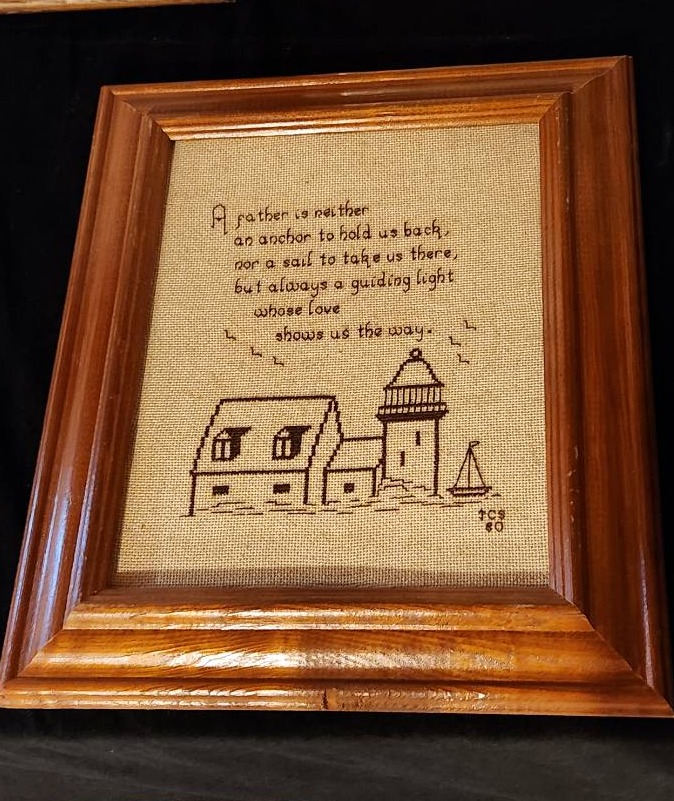 A father is neither
an anchor to hold us back,
nor a sail to take us there,
but always a guiding light
whose love
shows us the way.
TCS
80